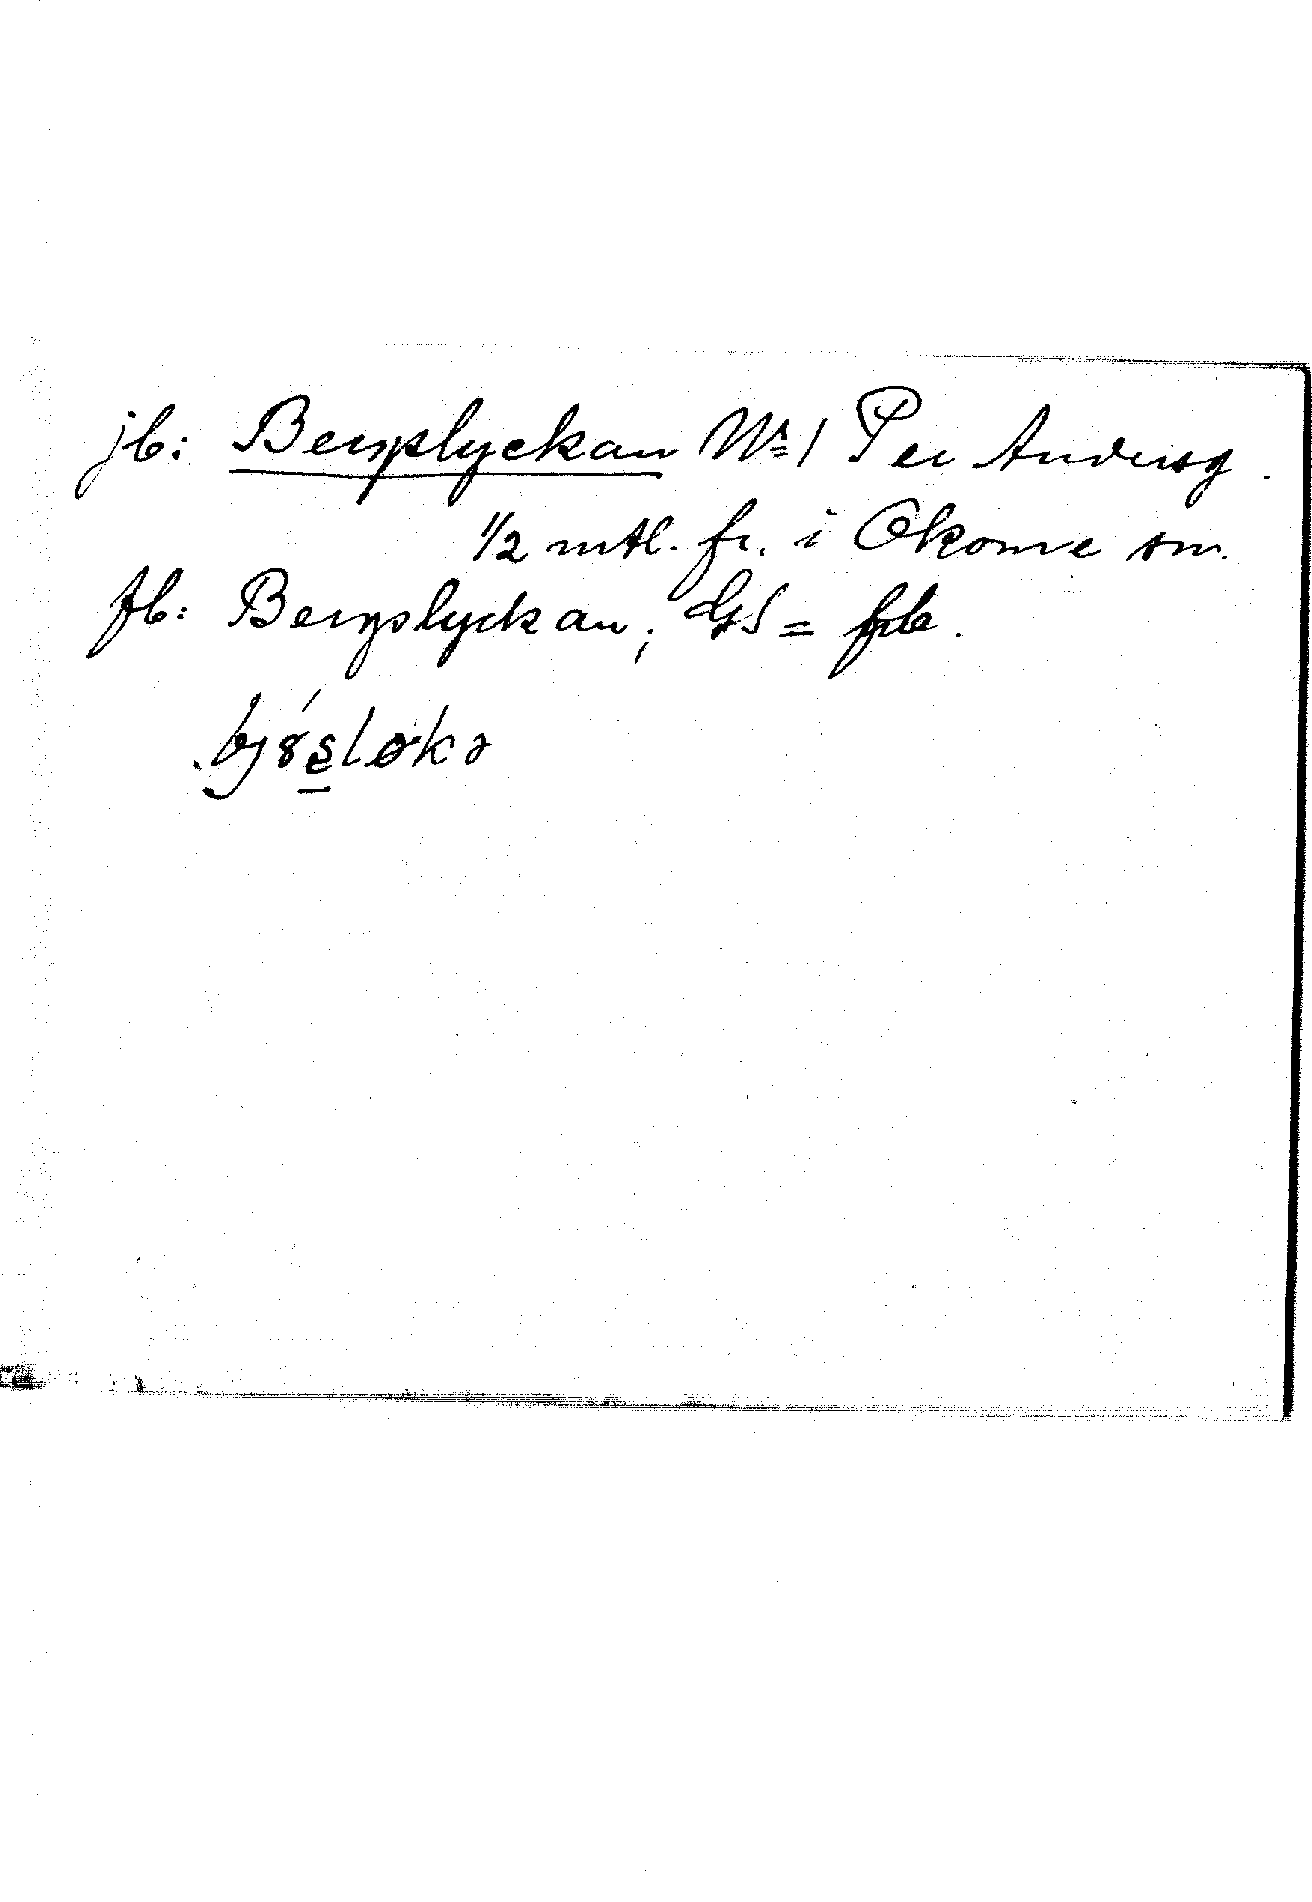 jb: Bergslyckan Nr 1 Per Andersg.
1/2 mtl. fr. i Okome sn.
fb: Bergslyckan; GS = fb.